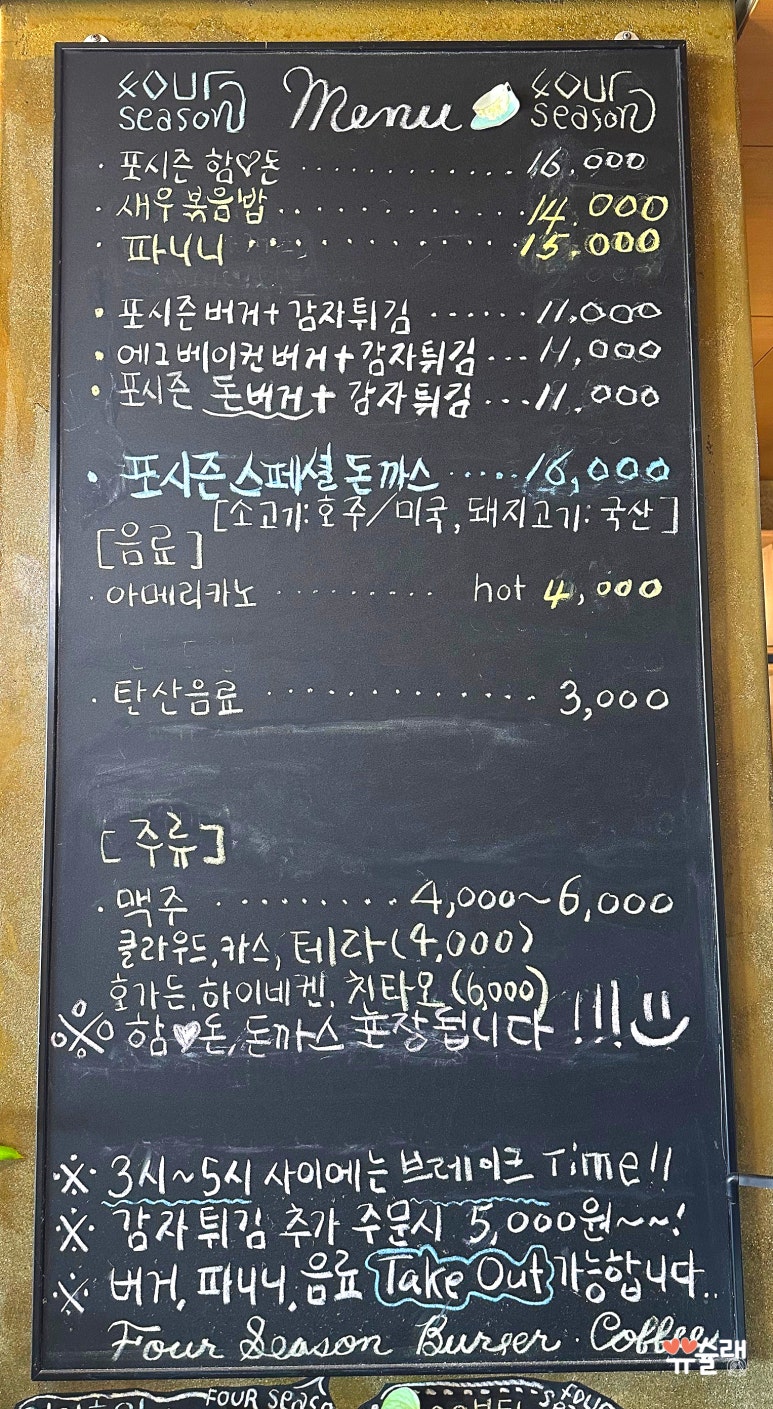 four Menu four
season season
· 포시즌 함♡돈 ............ 16.000
· 새우볶음밥 ............ 14.000
· 파니니 ............ 15.000
· 포시즌버거+감자튀김 ...... 11,000
· 에그베이컨버거+감자튀김 ... 11,000
· 포시즌 돈버거+감자튀김 ... 11,000
· 포시즌스페셜돈까스 ..... 16,000
[소고기:호주/미국, 돼지고기: 국산]
[음료]
· 아메리카노 ......... hot 4,000
· 탄산음료 .............. 3,000
[주류]
· 맥주 ......... 4,000~6,000
클라우드,카스, 테라(4,000)
호가든,하이네켄, 칭타오(6,000)
※ 함♥돈, 돈까스 포장됩니다!!!
※ 3시~5시 사이에는 브레이크 Time!!
※ 감자튀김 추가 주문시 5,000원~~!
※ 버거, 파니니, 음료 Take Out 가능합니다..
Four Season Burger · Coffee
뀨쓸래
FOUR Season